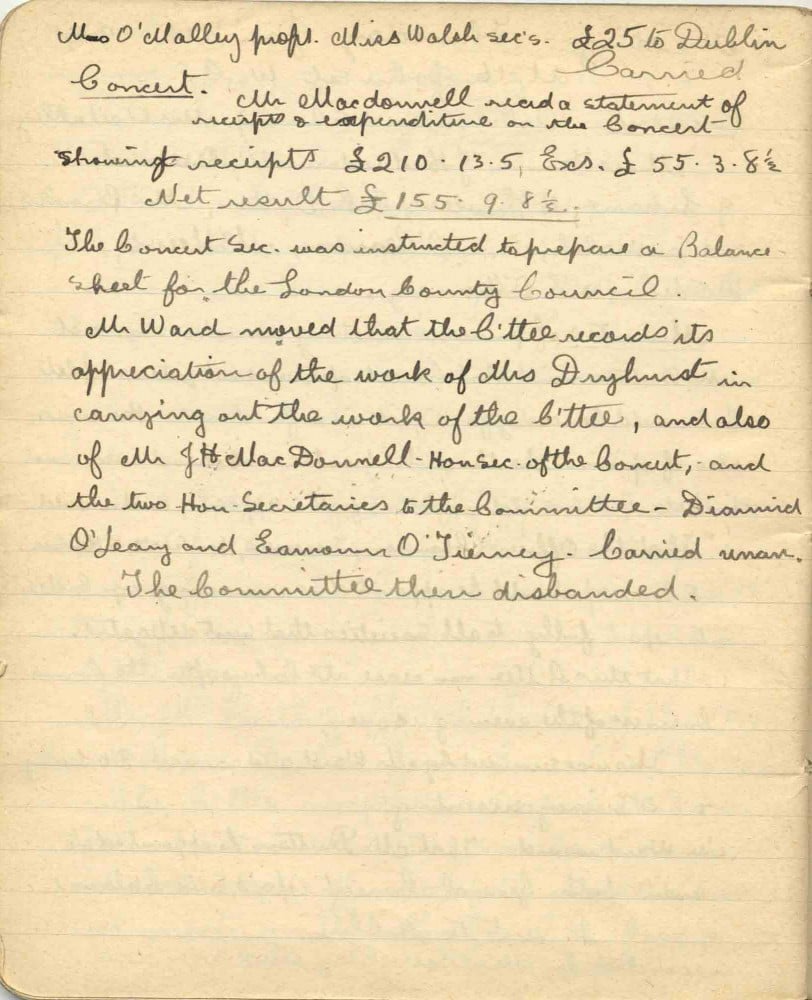 Mrs O'Malley propd. Miss Walsh sec's. £25 to Dublin
Carried
Concert.
Mr Macdonnell read a statement of
receipts & expenditure on the Concert
showing receipts £210 · 13 · 5, Exs. £ 55 · 3 · 8½
Net result £ 155 · 9 · 8½.
The Concert Sec. was instructed to prepare a Balance
sheet for the London County Council.
Mr Ward moved that the C'ttee records its
appreciation of the work of Mrs Dryhurst in
carrying out the work of the C'ttee, and also
of Mr J H MacDonnell - Hon Sec. of the Concert, and
the two Hon. Secretaries to the Committee - Diarmid
O'Leary and Eamonn O'Tierney. Carried unan.
The Committee then disbanded.